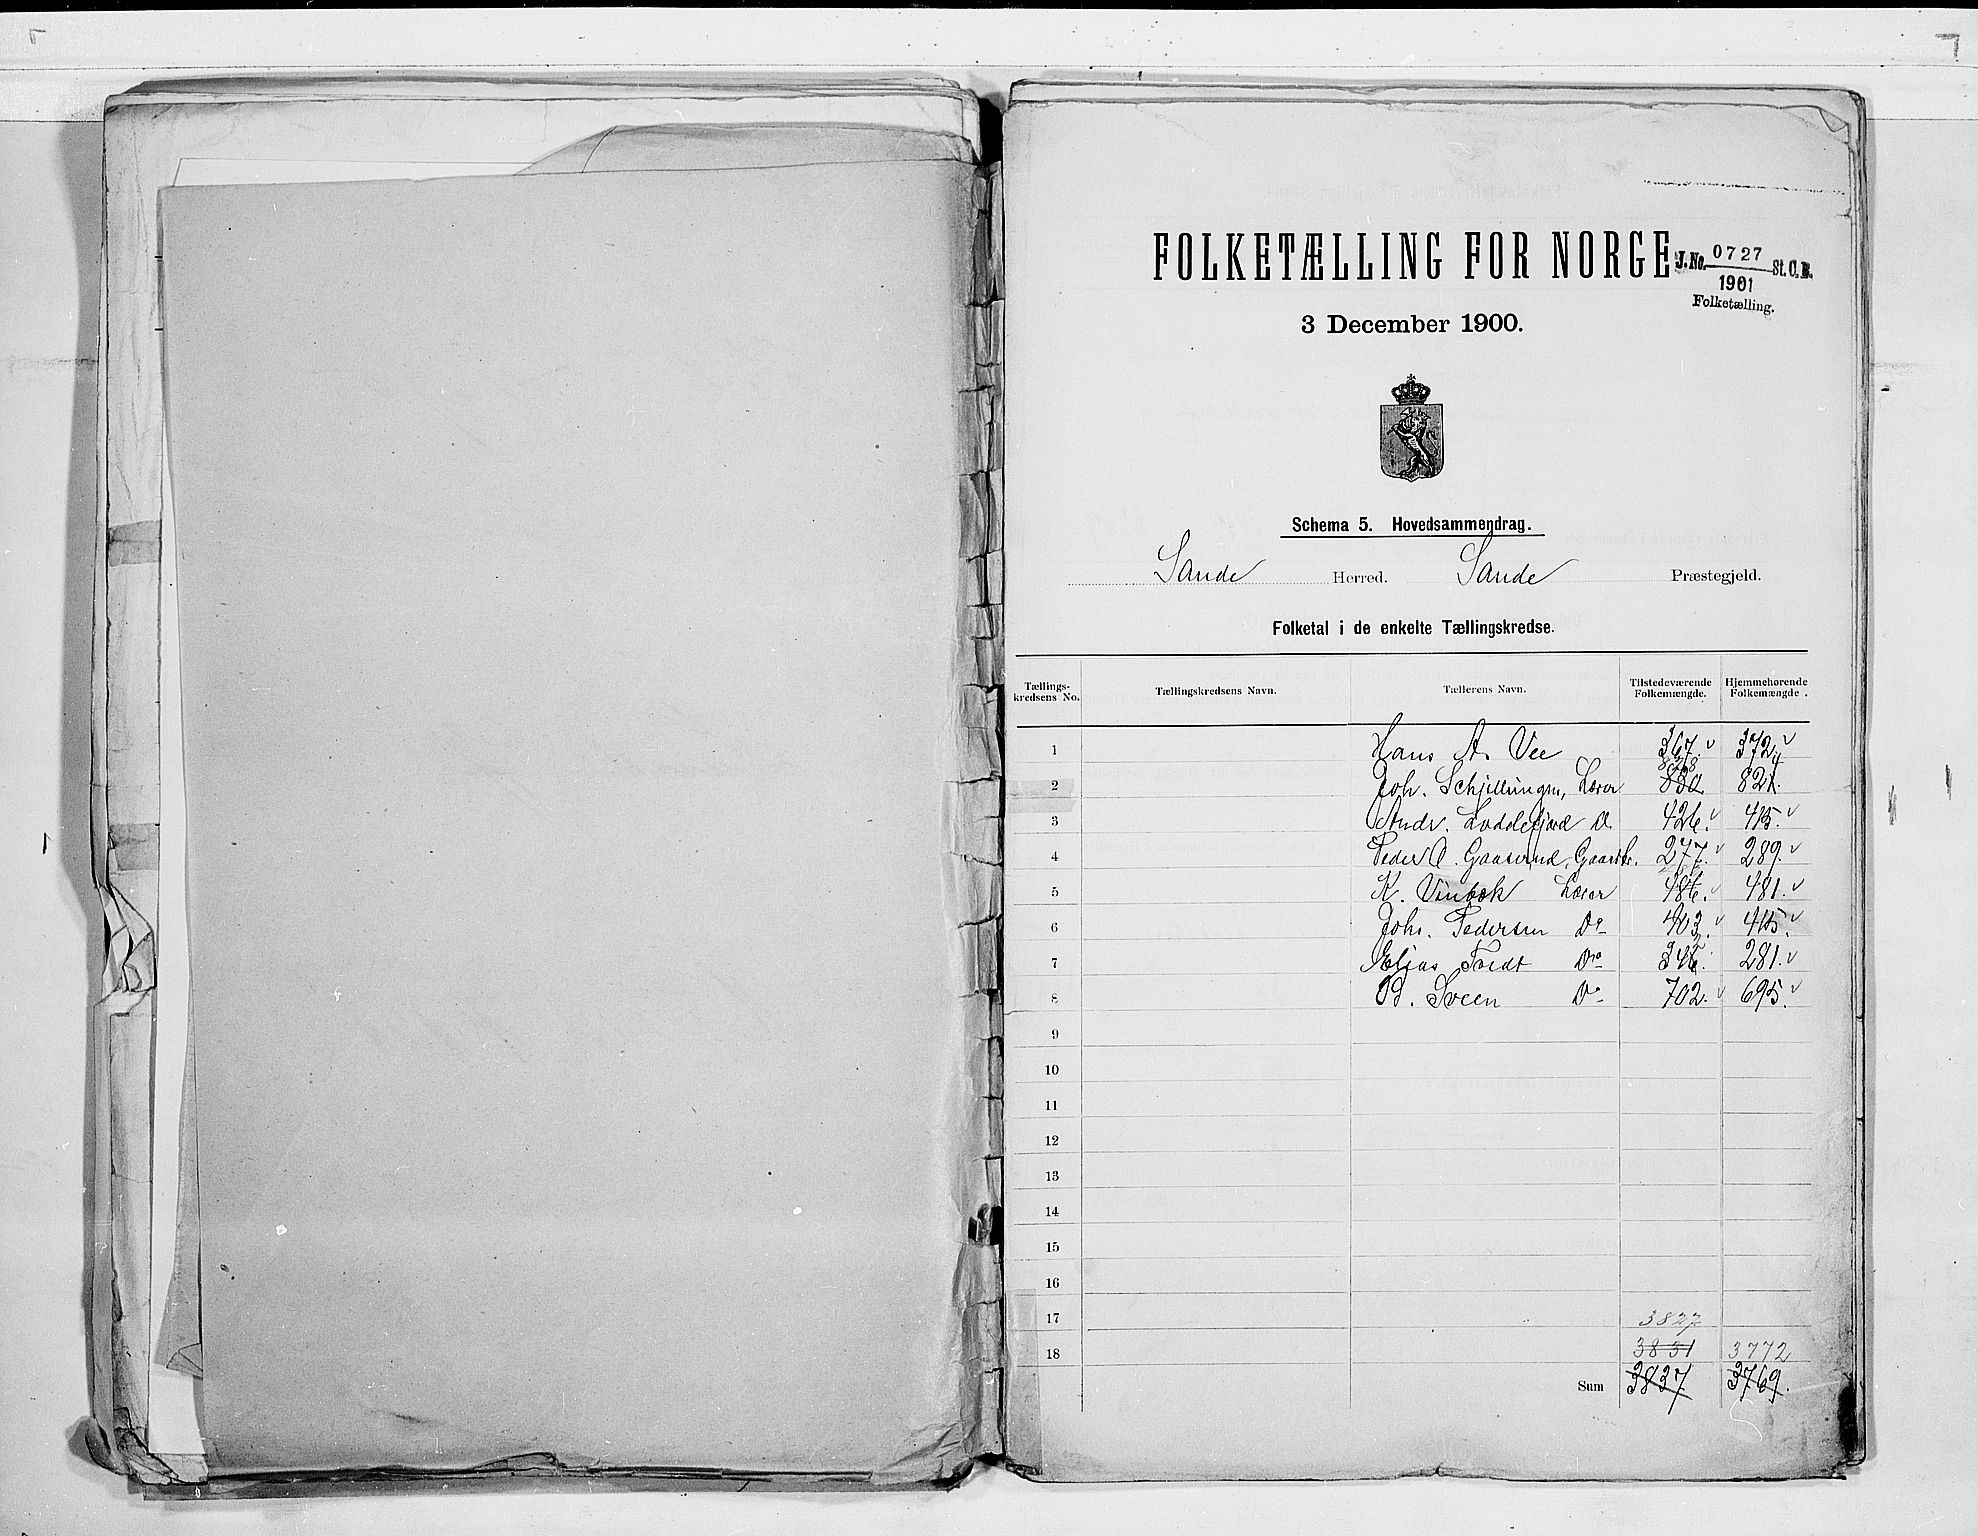 FOLKETÆLLING FOR NORGE
J. No. 0727 St. C. B.
1901
Folketælling.
3 December 1900.
Schema 5. Hovedsammendrag.
Sande Herred. Sande Præstegjeld.
Folketal i de enkelte Tællingskredse.
Tællings-kredsens No. Tællingskredsens Navn. Tællerens Navn. Tilstedeværende Folkemængde. Hjemmehørende Folkemængde.
1 Hans A. Vee 367. 372.
2 Joh. Schjellungsn, Lærer 830 828 821. 4
3 Andr. Loddesfjord D. 426. 415.
4 Peder O. Gaaserud, Gaardbr. 277. 289.
5 K. Vinbæk Lærer 486. 481.
6 Johs. Pedersen Do 403. 415.
7 Elias Tvedt Do 346. 281.
8 O. Sveen Do 702. 695.
9
10
11
12
13
14
15
16
17 3827
18 3831 3772
Sum 3837 3769.